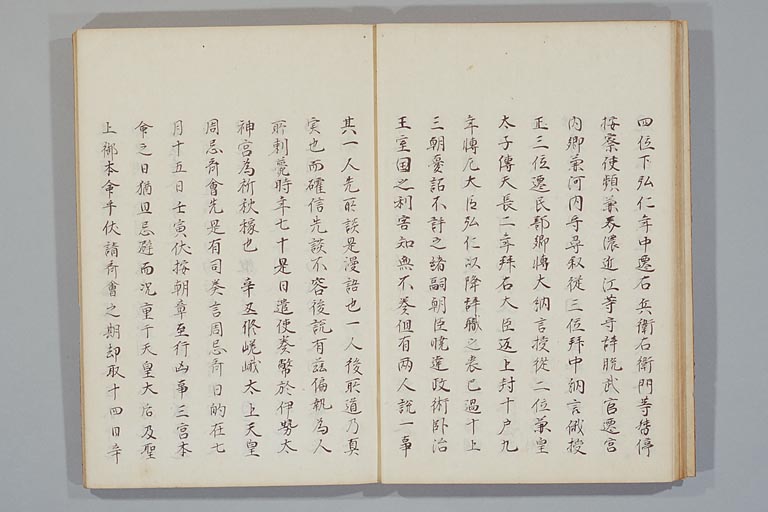 四位下弘仁年中遷右兵衛右衛門等督停
按察使頻兼美濃近江等守辞脱武官遷宮
内卿兼河内守尋叙従三位拜中納言俄授
正三位遷民部卿轉大納言授従二位兼皇
太子傅天長二年拜右大臣返上封十户九
年轉左大臣弘仁以降辞職之表已過十上
三朝愛詔不許之緒嗣朝臣暁達政術卧治
王室国之利害知無不奏但有两人説一事
其一人先所談是漫語也一人後所道乃真
実也而確信先談不容後説有茲偏執為人
所刺薨時年七十是日遣使奏幣於伊勢太
神宮為祈秋稼也 辛丑修嵯峨太上天皇
周忌斎會先是有司奏言周忌斎日的在七
月十五日壬寅伏按朝章至行凶事三宮本
命之日猶且忌避而况重于天皇大后及聖
上御本命乎伏請斎會之期却取十四日辛